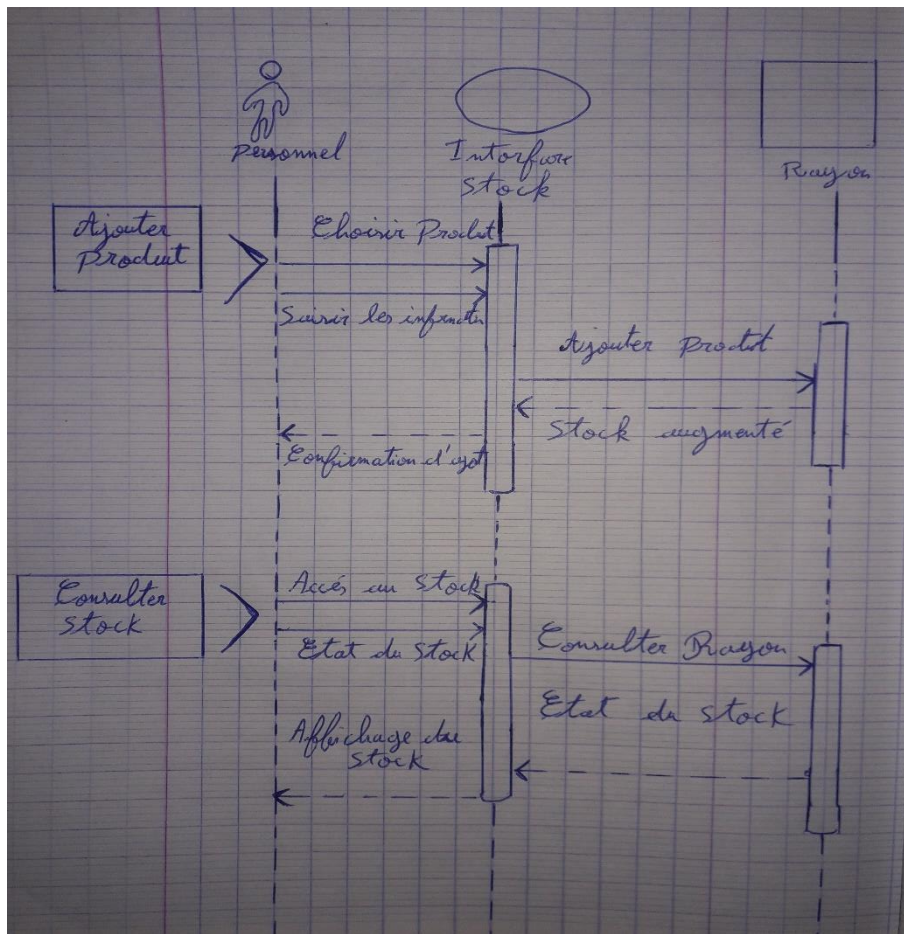 Personnel
Intorfure
Stock
Rayon
Ajouter
Produit
Choisir Produt
Saisir les
Ajouter Produt
Stock augmenté
Confirmation d'ajot
Consulter
Stock
Accés au Stock
Etat du Stock
Consulter Rayon
Etat du stock
Affichage du
Stock